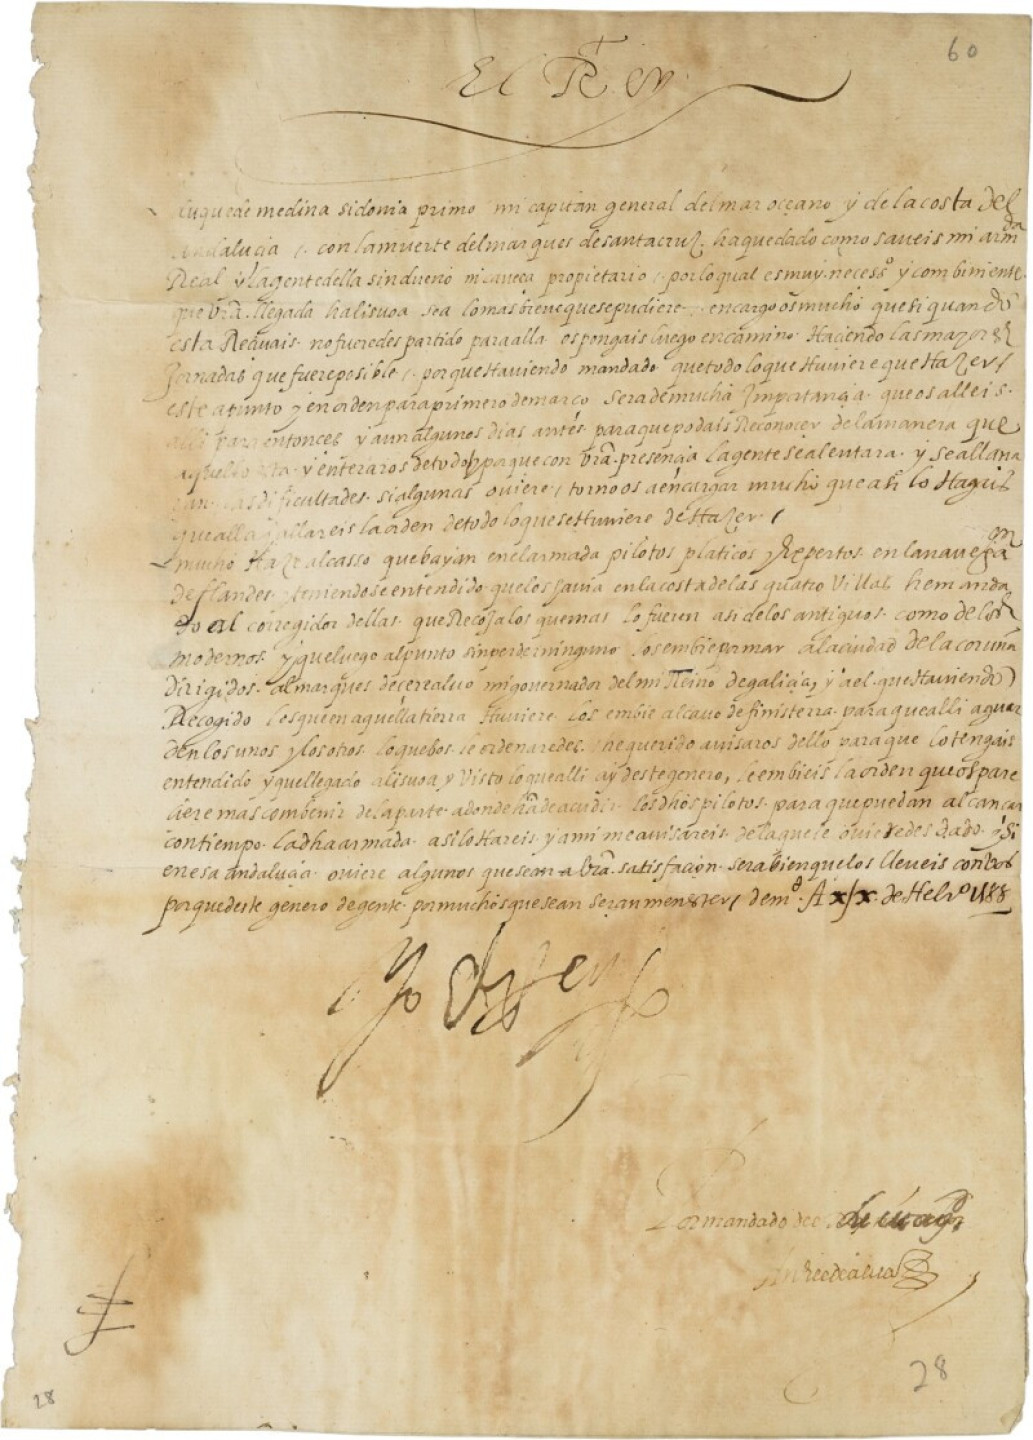 60
El Rey
duque de medina sidonia primo mi capitan general del mar oceano y de la costa del
andalucia /. con la muerte del marques de santa cruz. ha quedado como saveis mi armda
Real y la gente della sin dueño ni caveça propietario /. por lo qual es muy necesso y combiniente.
que vra. llegada ha lisvoa sea lo mas breve que se pudiere /. encargo os mucho que si quando
esta Reçivais. no fueredes partido para alla os pongais luego en camino. Haciendo las mayores
Jornadas que fuere posible /. porque Haviendo mandado que todo lo que stuviere que Hazer /
este a punto y en orden para primero de março sera de mucha Importancia. que os alleis.
alli para entonces y aun algunos dias antes. para que podais Reconocer de la manera que
aquello sta. y enteraros de todo y pa que con vra. presencia la gente se alentara. y se allana
ran las dificultades. si algunas oviere / torno os a encargar mucho que asi lo Hagais
que alla Hallareis la orden de todo lo que se Huviere de Hazer. /
mucho Haze al casso que bayan en el armada pilotos platicos y Expertos. en la navegaon
de flandes. y teniendose entendido. que los havia en la costa de las quatro Villas he manda
do al corregidor dellas. que Recoja los que mas lo fueren asi de los antiguos. como de los
modernos. y que luego al punto sin perder ninguno los embie por mar a la ciudad de la coruña
dirigidos. al marques de cerralvo mi governador del mi Reino de galicia, y a el. que Haviendo
Recogido los que en aquella tierra Huviere. los embie al cavo de finisterra. para que alli aguar
den los unos y los otros. lo que bos. le ordenaredes. he querido avisaros dello para que lo tengais
entendido y que llegado a lisvoa, y Visto lo que alli ay deste genero, le embieis la orden que os pare
ciere mas combenir de la parte. a donde ha de acudir. los dhos pilotos. para que puedan alcançar
con tiempo. la dha armada. asi lo Hareis. y a mi me avisareis. de la que le ovieredes dado. y Si
en esa andalucia. oviere algunos que sean a vra. satisfacion. sera bien que los lleveis con vos
porque deste genero de gente. por muchos que sean seran menester / de md. A xix. de Hebro 1588
Yo el Rey
Por mandado del
28
28